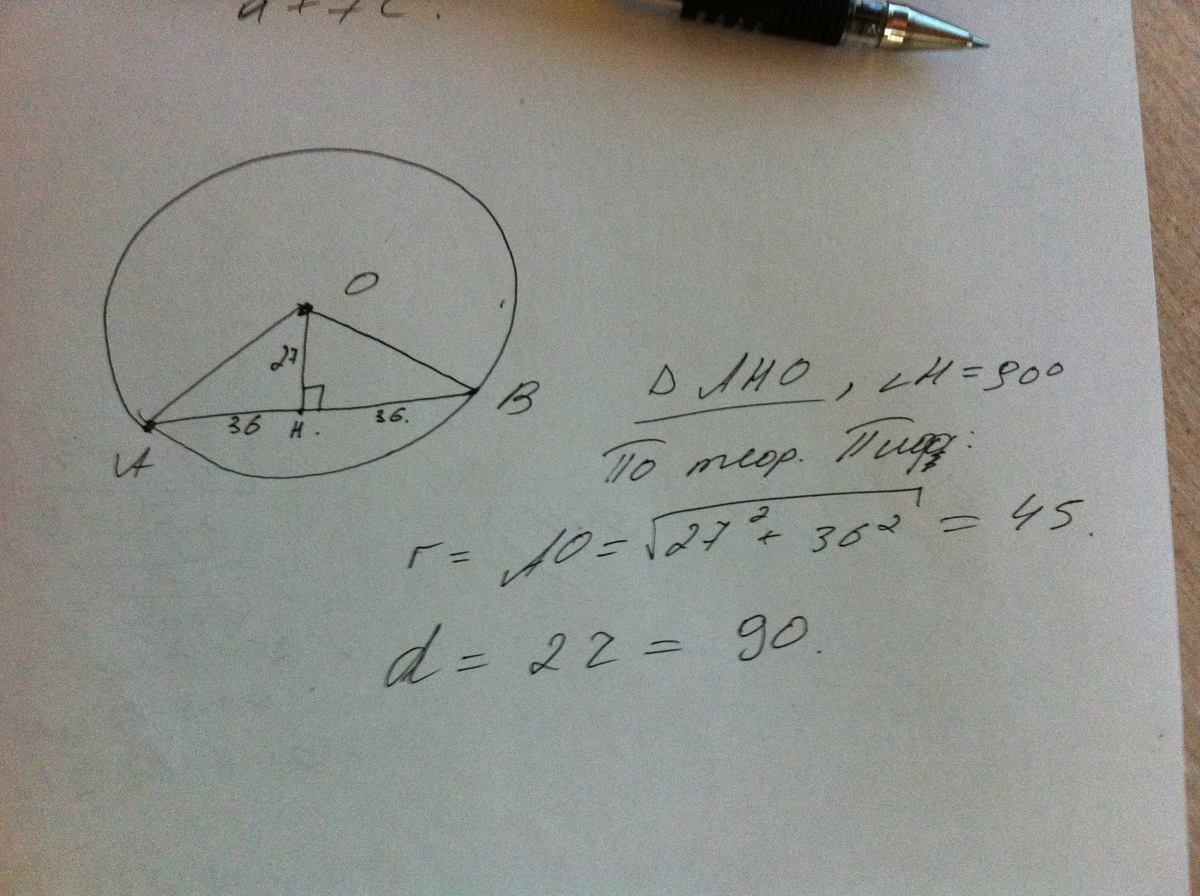 O
27
36 H. 36. B
A
Δ AHO, ∠H = 90°
По теор. Пиф:
r = AO = √27² + 36² = 45.
d = 2r = 90.